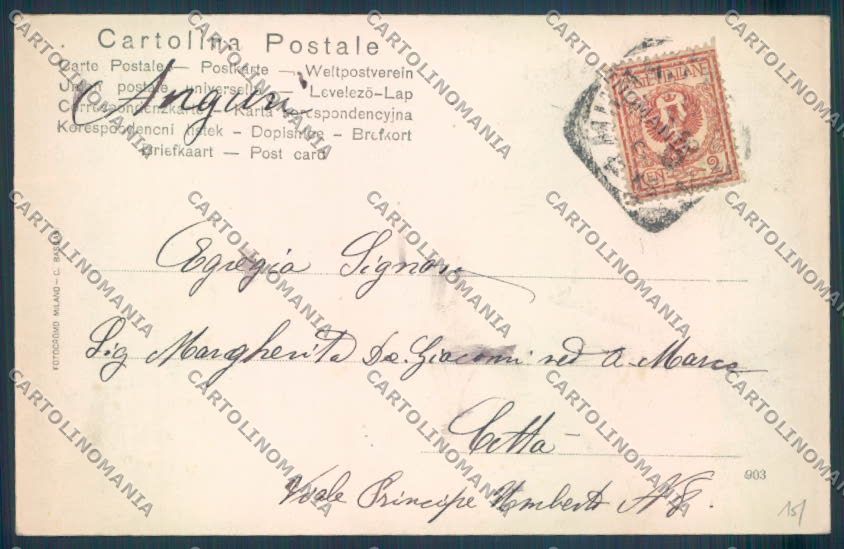 Cartolina Postale
Carte Postale — Postkarte — Weltpostverein
Union postale universelle — Levelező-Lap
Correspondenzkarte — Karta korespondencyjna
Korespondencni listek — Dopisnice — Brefkort
Briefkaart — Post card
Auguri
Egregia Signora
Sig Margherita De Giacomi ved A. Marca
Città
Viale Principe Umberto N 8.
903
15/
FOTOCROMO MILANO — C. BASSANI
2
CARTOLINOMANIA